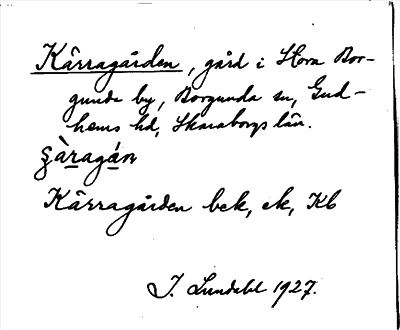 Kärragården, gård i Stora Bor-
gunda by, Borgunda sn, Gud-
hems hd, Skaraborgs län.
Kärragården bek, ek, Kb
J. Lundahl 1927.